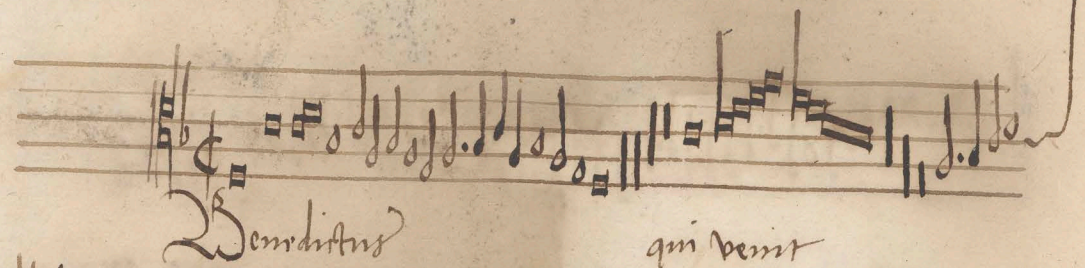 Benedictus qui venit